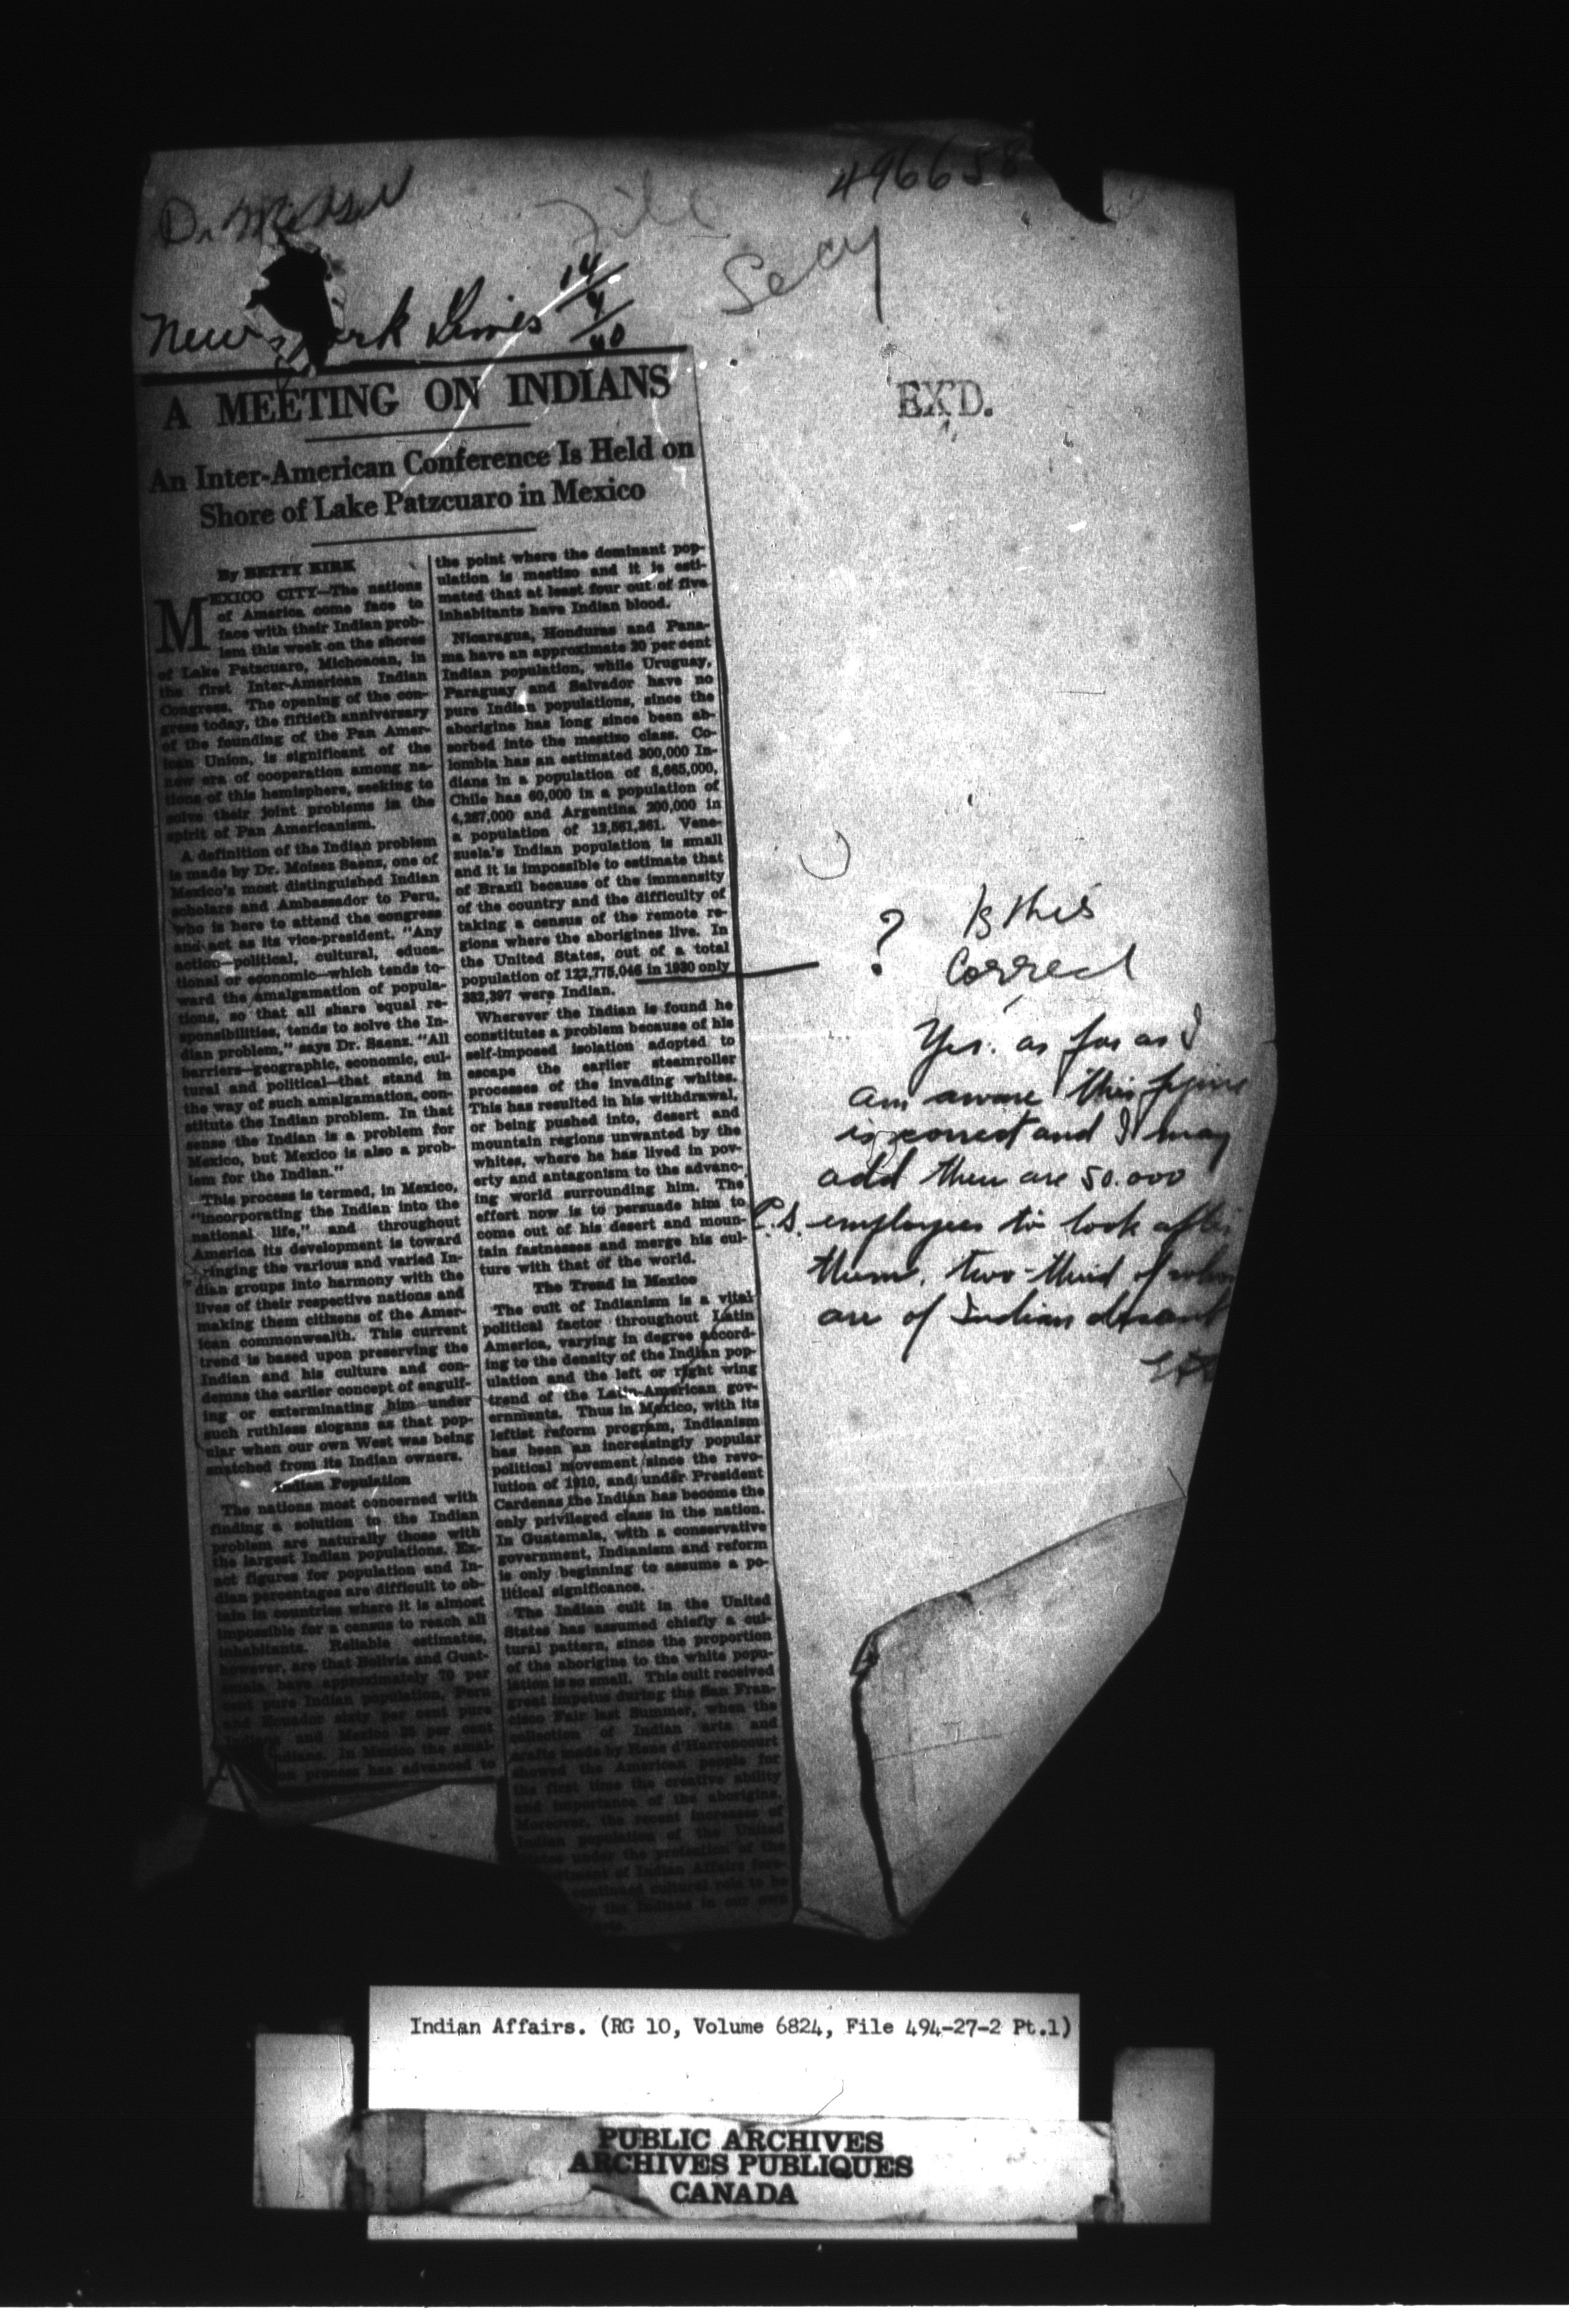 Dr
File
496658
Secy
New York Times 14/4/40
EX'D.
A MEETING ON INDIANS
An Inter-American Conference Is Held on
Shore of Lake Patzcuaro in Mexico
By BETTY KIRK
MEXICO CITY—The nations
of America come face to
face with their Indian prob-
lem this week on the shores
of Lake Patzcuaro, Michoacan, in
the first Inter-American Indian
Congress. The opening of the con-
gress today, the fiftieth anniversary
of the founding of the Pan Amer-
ican Union, is significant of the
new era of cooperation among na-
tions of this hemisphere, seeking to
solve their joint problems in the
spirit of Pan Americanism.
A definition of the Indian problem
is made by Dr. Moises Saenz, one of
Mexico's most distinguished Indian
scholars and Ambassador to Peru,
who is here to attend the congress
and act as its vice-president. "Any
action—political, cultural, educa-
tional or economic—which tends to-
ward the amalgamation of popula-
tions, so that all share equal re-
sponsibilities, tends to solve the In-
dian problem," says Dr. Saenz. "All
barriers—geographic, economic, cul-
tural and political—that stand in
the way of such amalgamation, con-
stitute the Indian problem. In that
sense the Indian is a problem for
Mexico, but Mexico is also a prob-
lem for the Indian."
This process is termed, in Mexico,
"incorporating the Indian into the
national life," and throughout
America its development is toward
bringing the various and varied In-
dian groups into harmony with the
lives of their respective nations and
making them citizens of the Amer-
ican commonwealth. This current
trend is based upon preserving the
Indian and his culture and con-
demns the earlier concept of engulf-
ing or exterminating him under
such ruthless slogans as that pop-
ular when our own West was being
snatched from its Indian owners.
Indian Population
The nations most concerned with
finding a solution to the Indian
problem are naturally those with
the largest Indian populations. Ex-
act figures for population and In-
dian percentages are difficult to ob-
tain in countries where it is almost
impossible for a census to reach all
inhabitants. Reliable estimates,
however, are that Bolivia and Guat-
emala have approximately 70 per
cent pure Indian population, Peru
and Ecuador sixty per cent pure
Indians and Mexico 35 per cent
Indians. In Mexico the amal-
process has advanced to
the point where the dominant pop-
ulation is mestizo and it is esti-
mated that at least four out of five
inhabitants have Indian blood.
Nicaragua, Honduras and Pana-
ma have an approximate 20 per cent
Indian population, while Uruguay,
Paraguay and Salvador have no
pure Indian populations, since the
aborigine has long since been ab-
sorbed into the mestizo class. Co-
lombia has an estimated 300,000 In-
dians in a population of 8,665,000,
Chile has 60,000 in a population of
4,287,000 and Argentina 200,000 in
a population of 12,561,361. Vene-
zuela's Indian population is small
and it is impossible to estimate that
of Brazil because of the immensity
of the country and the difficulty of
taking a census of the remote re-
gions where the aborigines live. In
the United States, out of a total
population of 122,775,046 in 1930 only
332,397 were Indian.
Wherever the Indian is found he
constitutes a problem because of his
self-imposed isolation adopted to
escape the earlier steamroller
processes of the invading whites.
This has resulted in his withdrawal,
or being pushed into, desert and
mountain regions unwanted by the
whites, where he has lived in pov-
erty and antagonism to the advanc-
ing world surrounding him. The
effort now is to persuade him to
come out of his desert and moun-
tain fastnesses and merge his cul-
ture with that of the world.
The Trend in Mexico
The cult of Indianism is a vital
political factor throughout Latin
America, varying in degree accord-
ing to the density of the Indian pop-
ulation and the left or right wing
trend of the Latin-American gov-
ernments. Thus in Mexico, with its
leftist reform program, Indianism
has been an increasingly popular
political movement since the revo-
lution of 1910, and under President
Cardenas the Indian has become the
only privileged class in the nation.
In Guatemala, with a conservative
government, Indianism and reform
is only beginning to assume a po-
litical significance.
The Indian cult in the United
States has assumed chiefly a cul-
tural pattern, since the proportion
of the aborigine to the white popu-
lation is so small. This cult received
great impetus during the San Fran-
cisco Fair last Summer, when the
collection of Indian arts and
crafts made by Rene d'Harnoncourt
showed the American people for
the first time the creative ability
and importance of the aborigine.
Moreover, the recent increases of
Indian population of the United
States under the protection of the
Department of Indian Affairs fore-
continued cultural role to be
by the Indians in our own
? Is this
Correct
Yes. as far as I
am aware this figure
is correct and I may
add there are 50.000
employees to look after
them, two-third of whom
are of Indian descent
Indian Affairs. (RG 10, Volume 6824, File 494-27-2 Pt.1)
PUBLIC ARCHIVES
ARCHIVES PUBLIQUES
CANADA